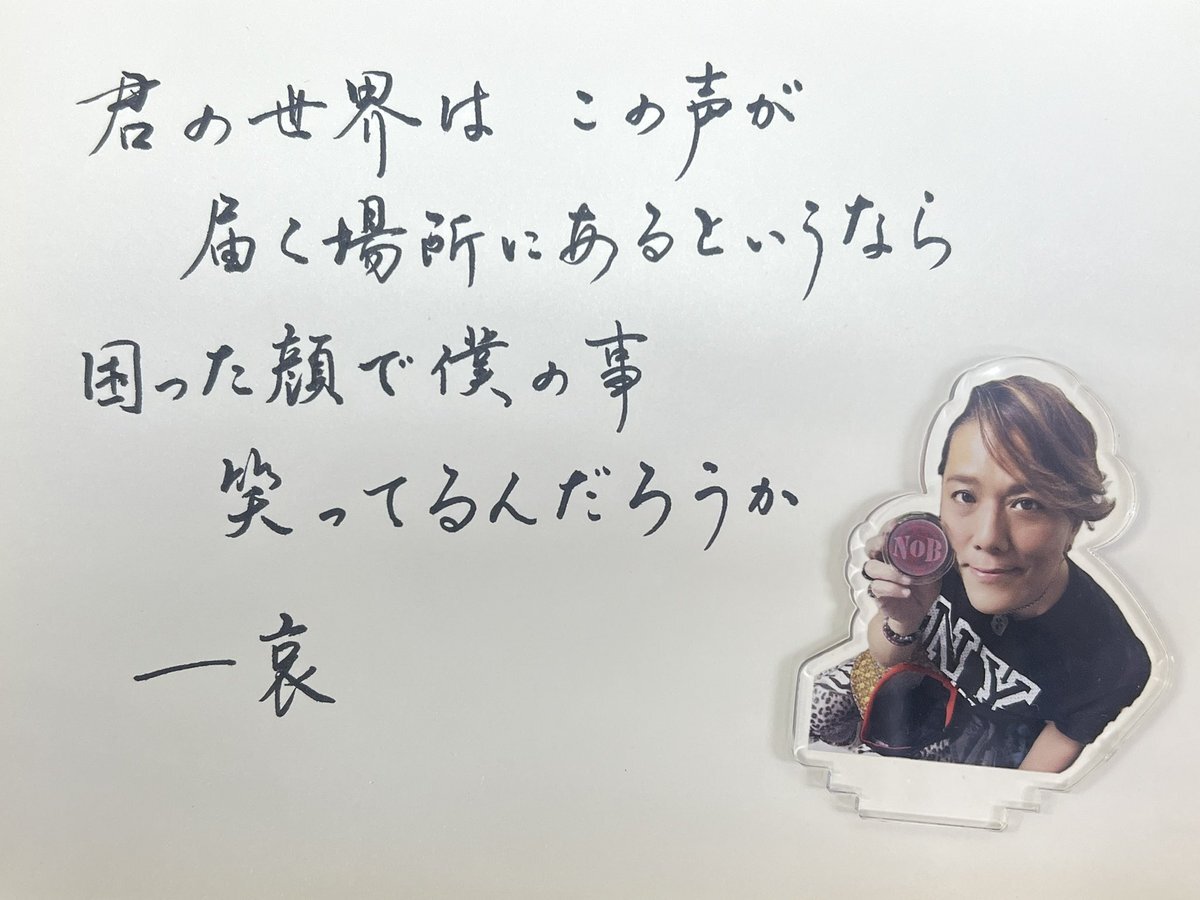 君の世界は この声が
届く場所にあるというなら
困った顔で僕の事
笑ってるんだろうか
一哀
NoB
NY